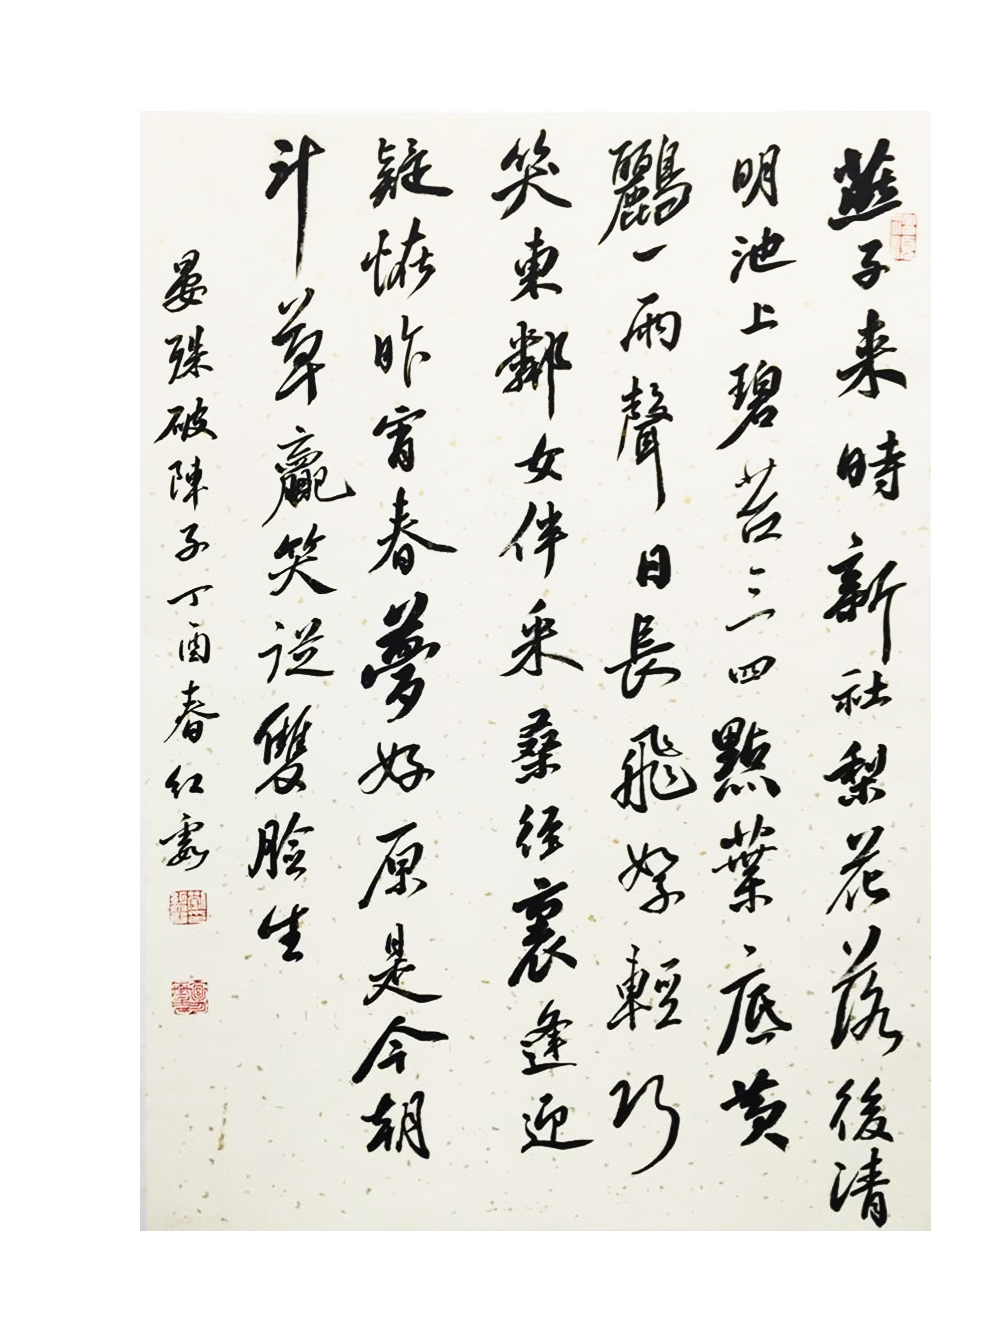 燕子来時新社梨花落後清
明池上碧苔三四點葉底黄
鸝一兩聲日長飛絮輕巧
笑東鄰女伴采桑徑裏逢迎
疑怪昨宵春夢好原是今朝
斗草贏笑從雙臉生
晏殊破陣子丁酉春红霞